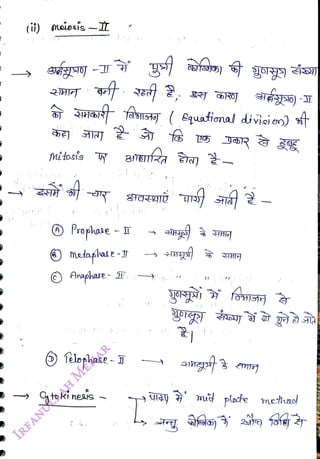 (ii) meiosis - II
→ अर्द्धसूत्रण - II में पुत्री कोशिका की गुणसूत्र संख्या
समान बनी रहती है, इस कारण अर्द्धसूत्रण - II
को समकारी विभाजन ( Equational division) भी
कहा जाता है जो कि एक प्रकार से हुबहू
mitosis पर आधारित होता है -
→ इसमें भी चार अवस्थाएँ पायी जाती है -
Ⓐ Prophase - II → समसूत्री के समान
Ⓑ metaphase - II → समसूत्री के समान
Ⓒ Anaphase - II → " " "
गुणसूत्रों में विभाजन से
गुणसूत्र संख्या में दो गुने हो जाते
है।
Ⓓ Telophase - II → समसूत्री के समान
→ Cytokinesis - → पादप में mid plate method
→ जन्तु कोशिका में खाँच विधि से
IRFANULLAH MEHAR